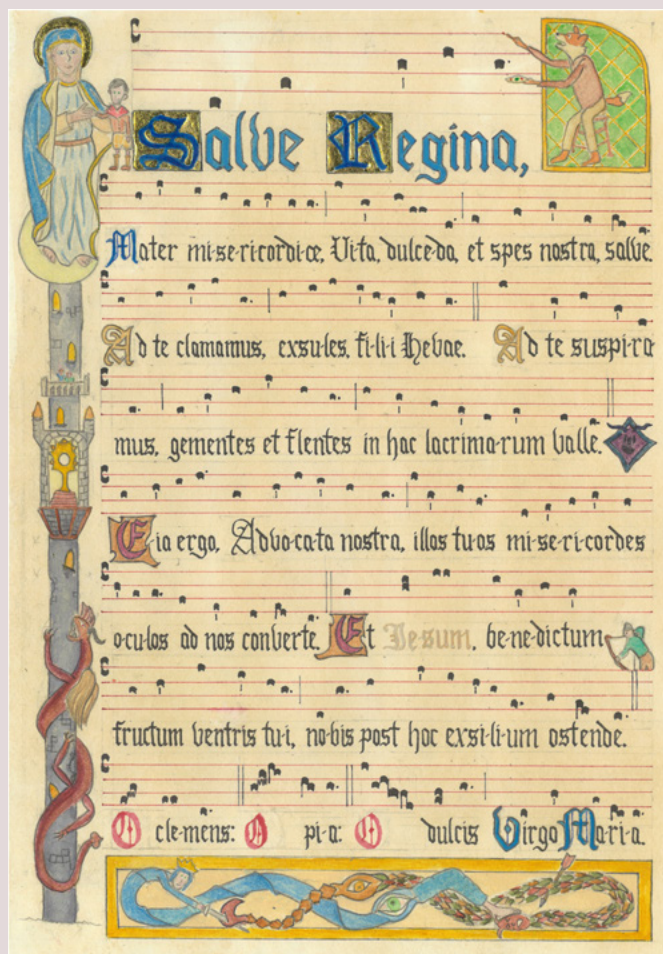 Salve Regina,
Mater mi-se-ri-cordi-æ, Vita, dulce-do, et spes nostra, salve.
Ad te clamamus, exsu-les, fi-li-i Hevae. Ad te suspi-ra
mus, gementes et flentes in hac lacrima-rum valle.
Eia ergo, Advo-ca-ta nostra, illos tu-os mi-se-ri-cordes
o-cu-los ad nos converte. Et Jesum, be-ne-dictum
fructum ventris tu-i, no-bis post hoc exsi-li-um ostende.
O cle-mens: O pi-a: O dulcis Virgo Mari-a.